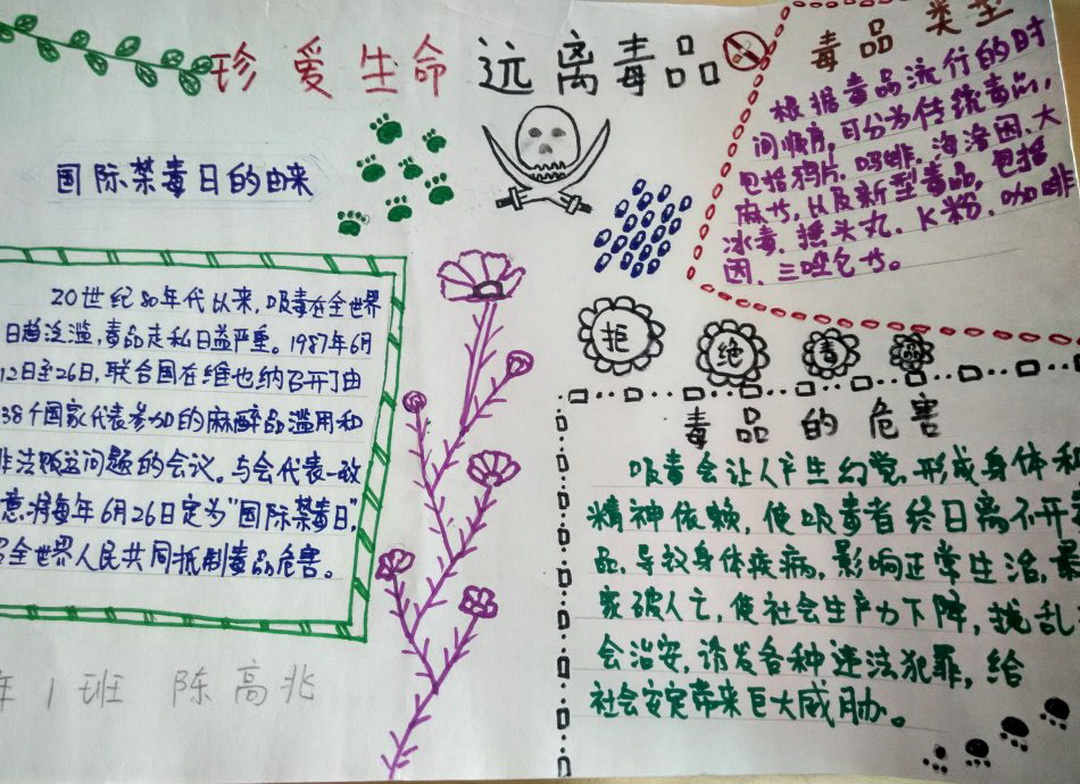 珍爱生命远离毒品
国际禁毒日的由来
20世纪80年代以来,吸毒在全世界
日趋泛滥,毒品走私日益严重。1987年6月
12日至26日,联合国在维也纳召开了由
38个国家代表参加的麻醉品滥用和
非法贩运问题的会议。与会代表一致
意将每年6月26日定为“国际禁毒日”,
全世界人民共同抵制毒品危害。
年1班 陈高兆
毒品类型
根据毒品流行的时
间顺序,可分为传统毒品,
包括鸦片、吗啡、海洛因、大
麻等,以及新型毒品,包括
冰毒、摇头丸、K粉、咖啡
因、三唑仑等。
拒绝毒品
毒品的危害
吸毒会让人产生幻觉,形成身体和
精神依赖,使吸毒者终日离不开毒
品,导致身体疾病,影响正常生活,最
家破人亡,使社会生产力下降,扰乱
会治安,诱发各种违法犯罪,给
社会安定带来巨大威胁。